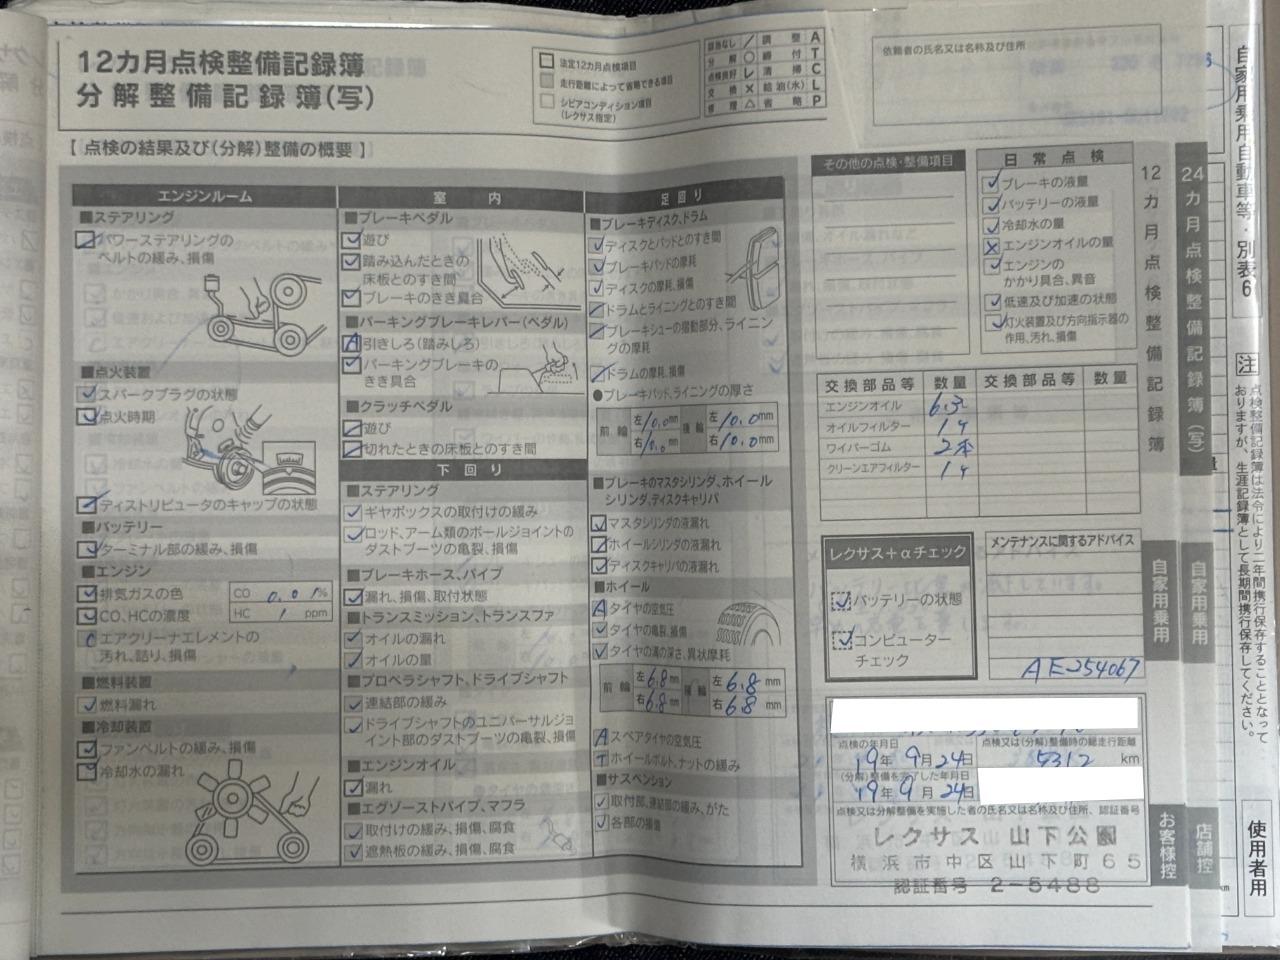 12カ月点検整備記録簿
分解整備記録簿(写)
法定12カ月点検項目
走行距離によって省略できる項目
シビアコンディション項目
(レクサス指定)
該当なし ／ 調整 A
分解 ○ 締付 T
点検良好 レ 清掃 C
交換 × 給油(水) L
修理 △ 省略 P
依頼者の氏名又は名称及び住所
【 点検の結果及び(分解)整備の概要 】
エンジンルーム
■ステアリング
パワーステアリングの
ベルトの緩み、損傷
■点火装置
スパークプラグの状態
点火時期
ディストリビュータのキャップの状態
■バッテリー
ターミナル部の緩み、損傷
■エンジン
排気ガスの色
CO、HCの濃度
CO 0.01%
HC 1 ppm
エアクリーナエレメントの
汚れ、詰り、損傷
■燃料装置
燃料漏れ
■冷却装置
ファンベルトの緩み、損傷
冷却水の漏れ
室内
■ブレーキペダル
遊び
踏み込んだときの
床板とのすき間
ブレーキのきき具合
■パーキングブレーキレバー(ペダル)
A 引きしろ(踏みしろ)
パーキングブレーキの
きき具合
■クラッチペダル
遊び
切れたときの床板とのすき間
下回り
■ステアリング
ギヤボックスの取付けの緩み
ロッド、アーム類のボールジョイントの
ダストブーツの亀裂、損傷
■ブレーキホース、パイプ
漏れ、損傷、取付状態
■トランスミッション、トランスファ
オイルの漏れ
オイルの量
■プロペラシャフト、ドライブシャフト
連結部の緩み
ドライブシャフトのユニバーサルジョ
イント部のダストブーツの亀裂、損傷
■エンジンオイル
漏れ
■エグゾーストパイプ、マフラ
取付けの緩み、損傷、腐食
遮熱板の緩み、損傷、腐食
足回り
■ブレーキディスク、ドラム
ディスクとパッドとのすき間
ブレーキパッドの摩耗
ディスクの摩耗、損傷
ドラムとライニングとのすき間
ブレーキシューの摺動部分、ライニン
グの摩耗
ドラムの摩耗、損傷
●ブレーキパッド、ライニングの厚さ
前輪 左 10.0mm 後輪 左 10.0mm
右 10.0mm 右 10.0mm
■ブレーキのマスタシリンダ、ホイール
シリンダ、ディスクキャリパ
マスタシリンダの液漏れ
ホイールシリンダの液漏れ
ディスクキャリパの液漏れ
■ホイール
A タイヤの空気圧
タイヤの亀裂、損傷
タイヤの溝の深さ、異状摩耗
前輪 左 6.8mm 後輪 左 6.8mm
右 6.8mm 右 6.8mm
A スペアタイヤの空気圧
T ホイールボルト、ナットの緩み
■サスペンション
取付部、連結部の緩み、がた
各部の損傷
その他の点検・整備項目
日常点検
ブレーキの液量
バッテリーの液量
冷却水の量
エンジンオイルの量
エンジンの
かかり具合、異音
低速及び加速の状態
灯火装置及び方向指示器の
作用、汚れ、損傷
交換部品等 数量 交換部品等 数量
エンジンオイル
オイルフィルター 1ケ
ワイパーゴム 2本
クリーンエアフィルター 1ケ
レクサス+αチェック
バッテリーの状態
コンピューター
チェック
メンテナンスに関するアドバイス
AE254067
点検の年月日
19年 9月 24日
点検又は(分解)整備時の総走行距離
5312 km
(分解)整備を完了した年月日
19年 9月 24日
点検又は分解整備を実施した者の氏名又は名称及び住所、認証番号
レクサス 山下公園
横浜市中区山下町65
認証番号 2-5488
12カ月点検整備記録簿
自家用乗用
お客様控
24カ月点検整備記録簿(写)
自家用乗用
店舗控
自家用乗用自動車等・別表6
注
点検整備記録簿は法令により二年間携行保存することとなって
おりますが、生涯記録簿として長期間携行保存してください。
使用者用